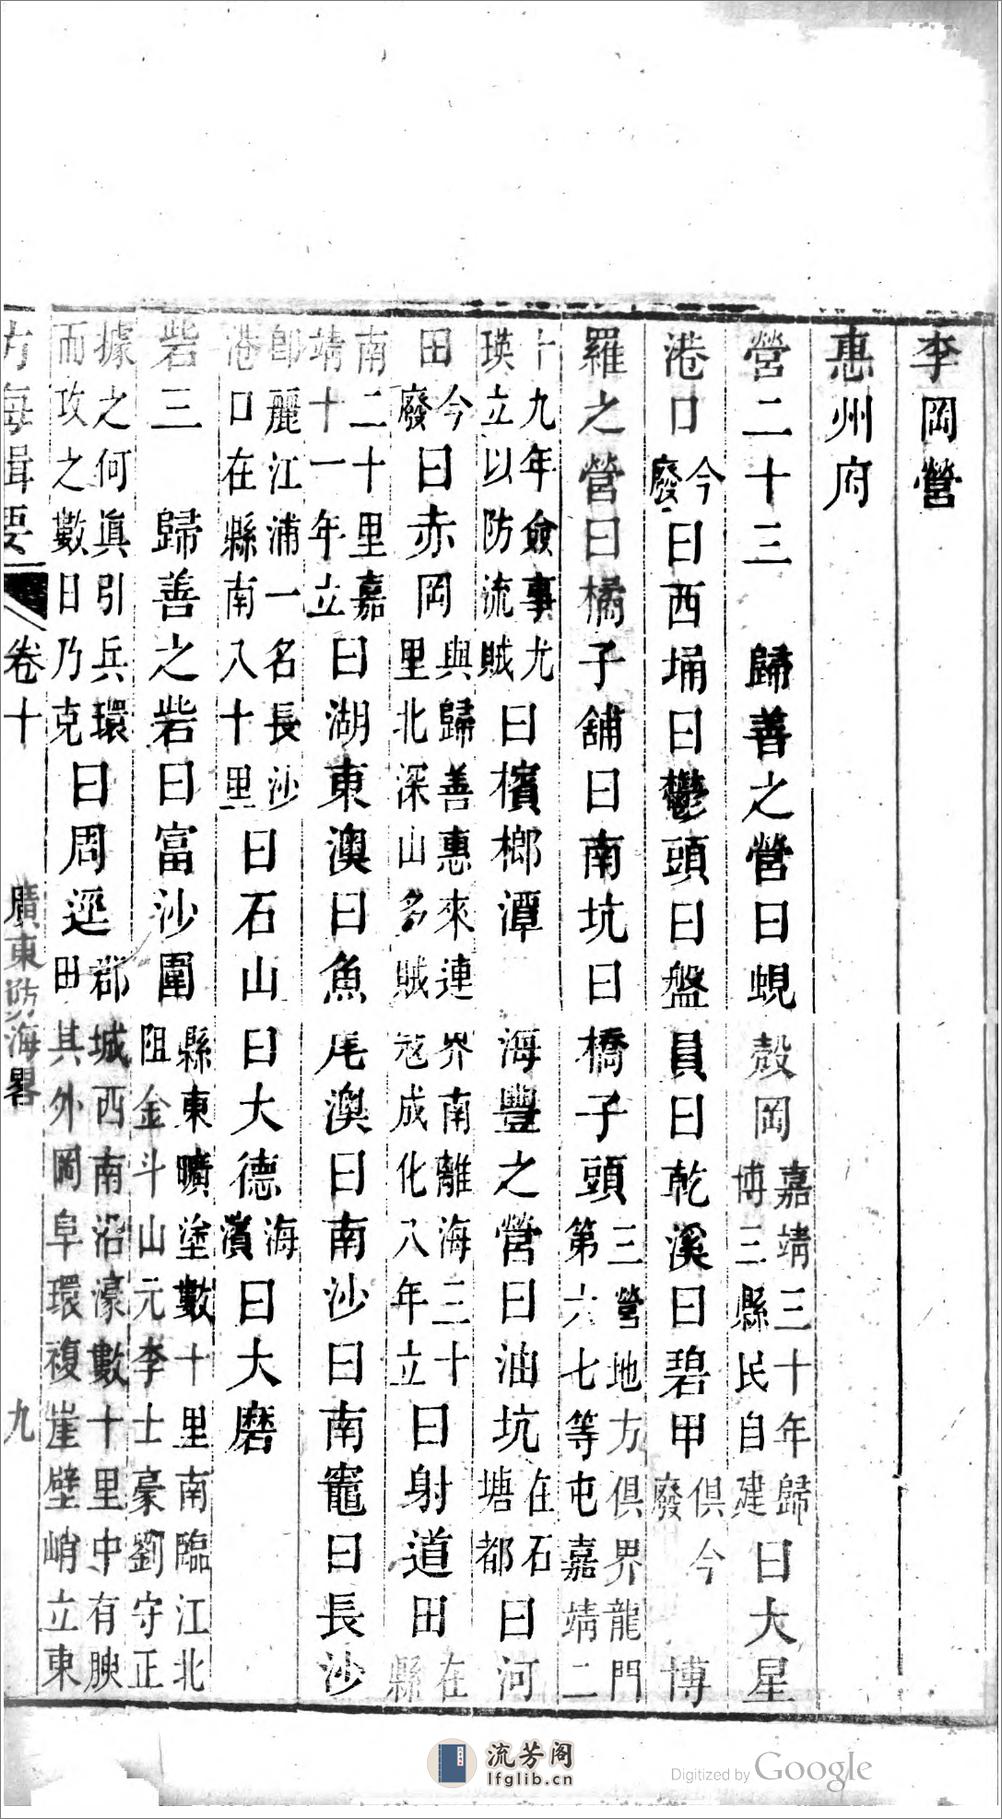 李岡營
惠州府
營二十三　歸善之營曰蜆殼岡嘉靖三十年歸博三縣民自建曰大星
港口今廢曰西埇曰鬱頭曰盤員曰乾溪曰碧甲俱今廢　博
羅之營曰橘子舖曰南坑曰橋子頭三營地方俱界龍門第六七等屯嘉靖二
十九年僉事尤瑛立以防流賊曰檳榔潭　海豐之營曰油坑在石塘都曰河
田今廢曰赤岡與歸善惠來連界南離海三十里北深山多賊寇成化八年立曰射道田在縣
南二十里嘉靖十一年立曰湖東澳曰魚尾澳曰南沙曰南竈曰長沙
卽麗江浦一名長沙港口在縣南八十里曰石山曰大德海濱曰大磨
砦三　歸善之砦曰富沙圍縣東曠塗數十里南臨江北阻金斗山元李士豪劉守正
據之何眞引兵環而攻之數日乃克曰周逕郡城西南沿濠數十里中有腴田其外岡阜環複崖壁峭立東
方海輯要　卷十　廣東防海畧　九
流芳阁
lfglib.cn
Digitized by Google